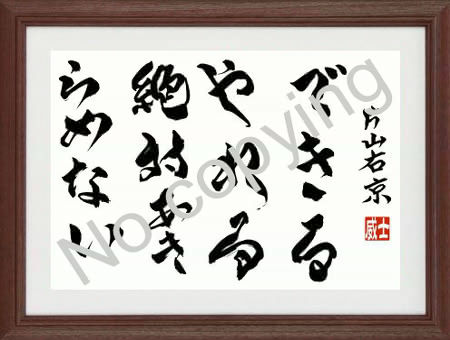 片山右京
士威
できる
やれる
絶対あき
らめない
No copying